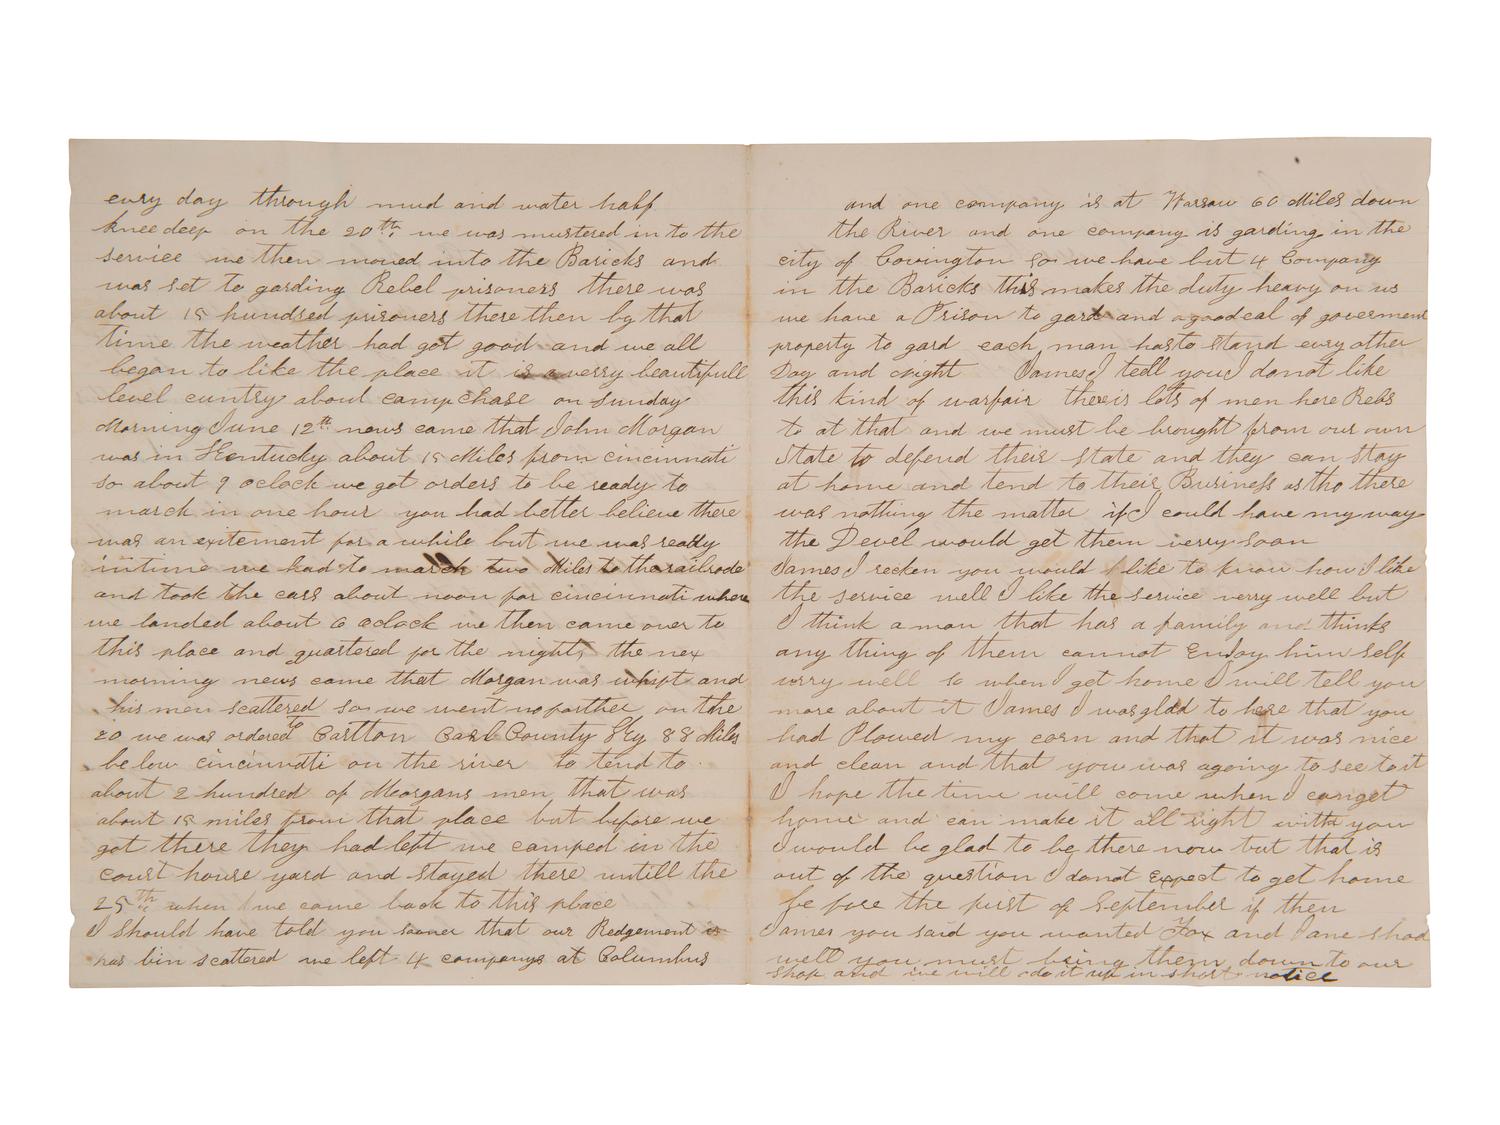 every day through mud and water half
knee deep on the 20th we was mustered in to the
service we then moved into the Baricks and
was set to garding Rebel prisoners there was
about 15 hundred prisoners there then by that
time the weather had got good and we all
began to like the place it is a verry beautifull
level cuntry about camp Chase on Sunday
Morning June 12th news came that John Morgan
was in Kentucky about 15 Miles from cincinnati
so about 9 oclock we got orders to be ready to
march in one hour you had better believe there
was an exitement for a while but we was ready
in time we had to march two Miles to the railrode
and took the cars about noon for cincinnati where
we landed about 6 oclock we then came over to
this place and quartered for the night, the nex
morning news came that Morgan was whipt and
his men scattered so we went no farther on the
20 we was ordered to Carlton Carl County Ky 88 Miles
below cincinnati on the river to tend to
about 2 hundred of Meorgans men that was
about 15 miles from that place but before we
got there they had left we camped in the
court house yard and stayed there untill the
25th when we came back to this place
I should have told you sooner that our Redgement is
has bin scattered we left 4 companys at Columbus
and one company is at Warsaw 60 Miles down
the River and one company is garding in the
city of Covington so we have but 4 Company
in the Baricks this makes the duty heavy on us
we have a Prison to gard and a good eal of goverment
property to gard each man has to stand evry other
Day and night James I tell you I do not like
this kind of warfair there is lots of men here Rebs
to at that and we must be brought from our own
State to defend their state and they can stay
at home and tend to their Business as tho there
was nothing the matter if I could have my way
the Devel would get them verry soon
James I recken you would like to know how I like
the service well I like the service verry well but
I think a man that has a family and thinks
any thing of them cannot Enjoy him self
verry well so when I get home I will tell you
more about it James I was glad to here that you
had Plowed my corn and that it was nice
and clean and that you was agoing to see to it
I hope the time will come when I can get
home and can make it all right with you
I would be glad to be there now but that is
out of the question I do not Expect to get home
be fore the first of September if then
James you said you wanted Fox and Jane shod
well you must bring them down to our
shop and we will do it up in short notice